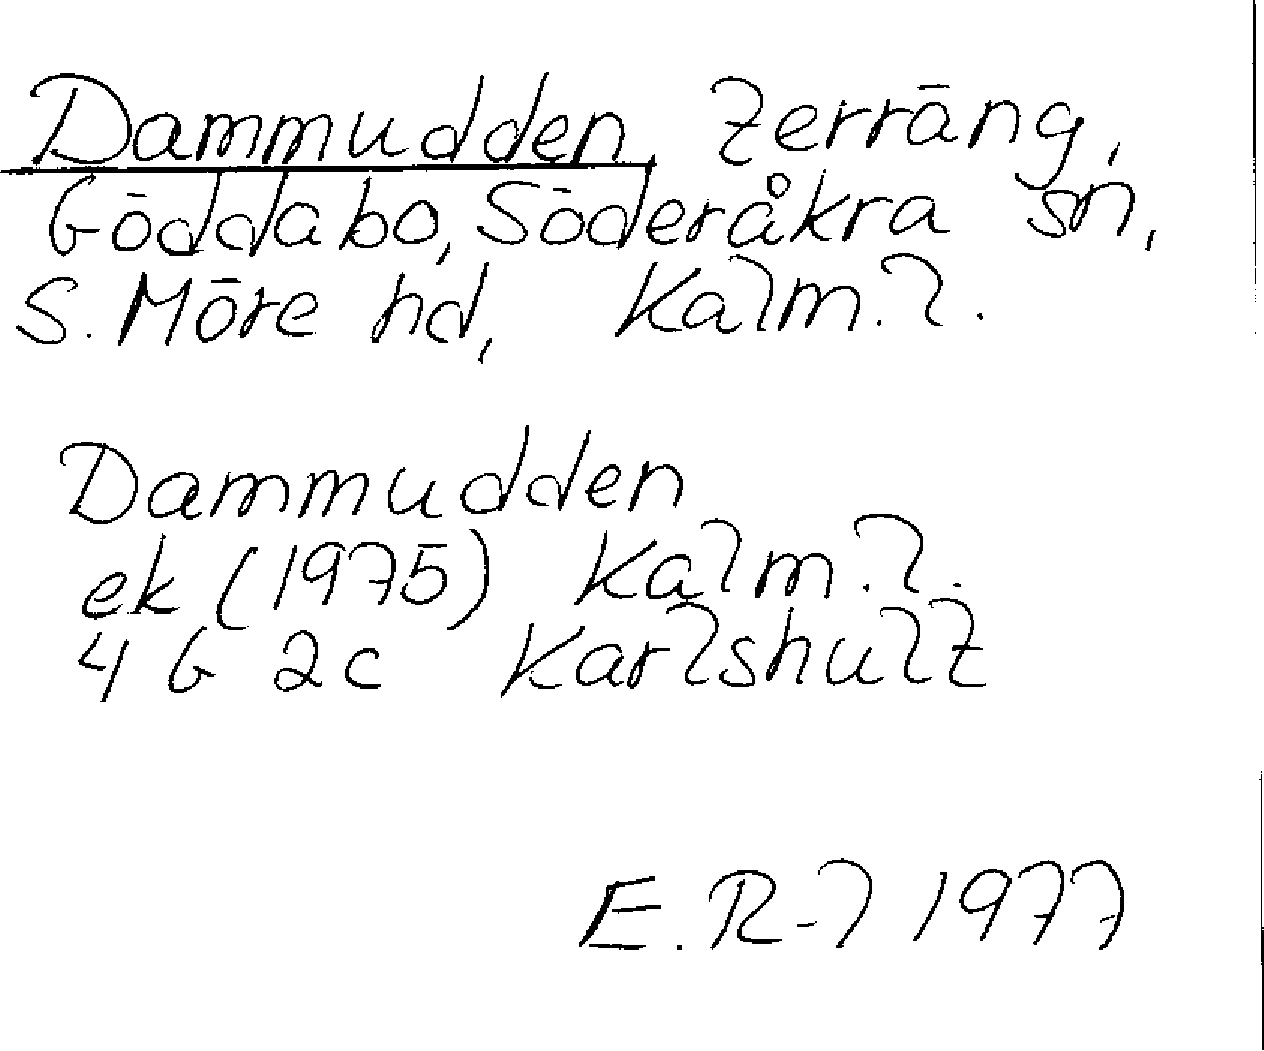 Dammudden, terräng,
Göddabo, Söderåkra sn,
S. Möre hd, Kalm. l.
Dammudden
ek (1975) Kalm. l.
4 G 2c Karlshult
E. R-l 1977